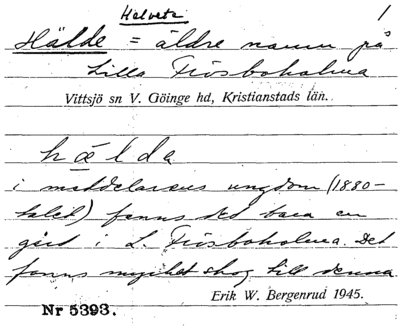 Helvete 1
Hälde = äldre namn på
Lilla Frösboholma
Vittsjö sn V. Göinge hd, Kristianstads län.
hælda
i meddelarens ungdom (1880-
talet) fanns det bara en
gård i L. Frösboholma. Det
fanns mycket skog till denna
Erik W. Bergenrud 1945.
Nr 5393.